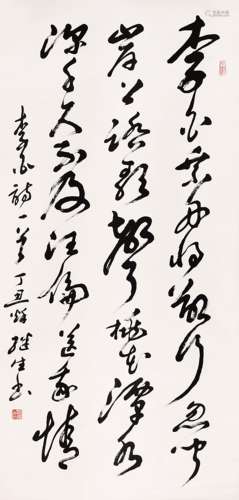 李白乘舟將欲行忽聞
岸上踏歌聲桃花潭水
深千尺不及汪倫送我情
李白詩一首 丁丑秋 继生书